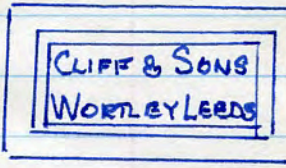 CLIFF & SONS
WORTLEY LEEDS